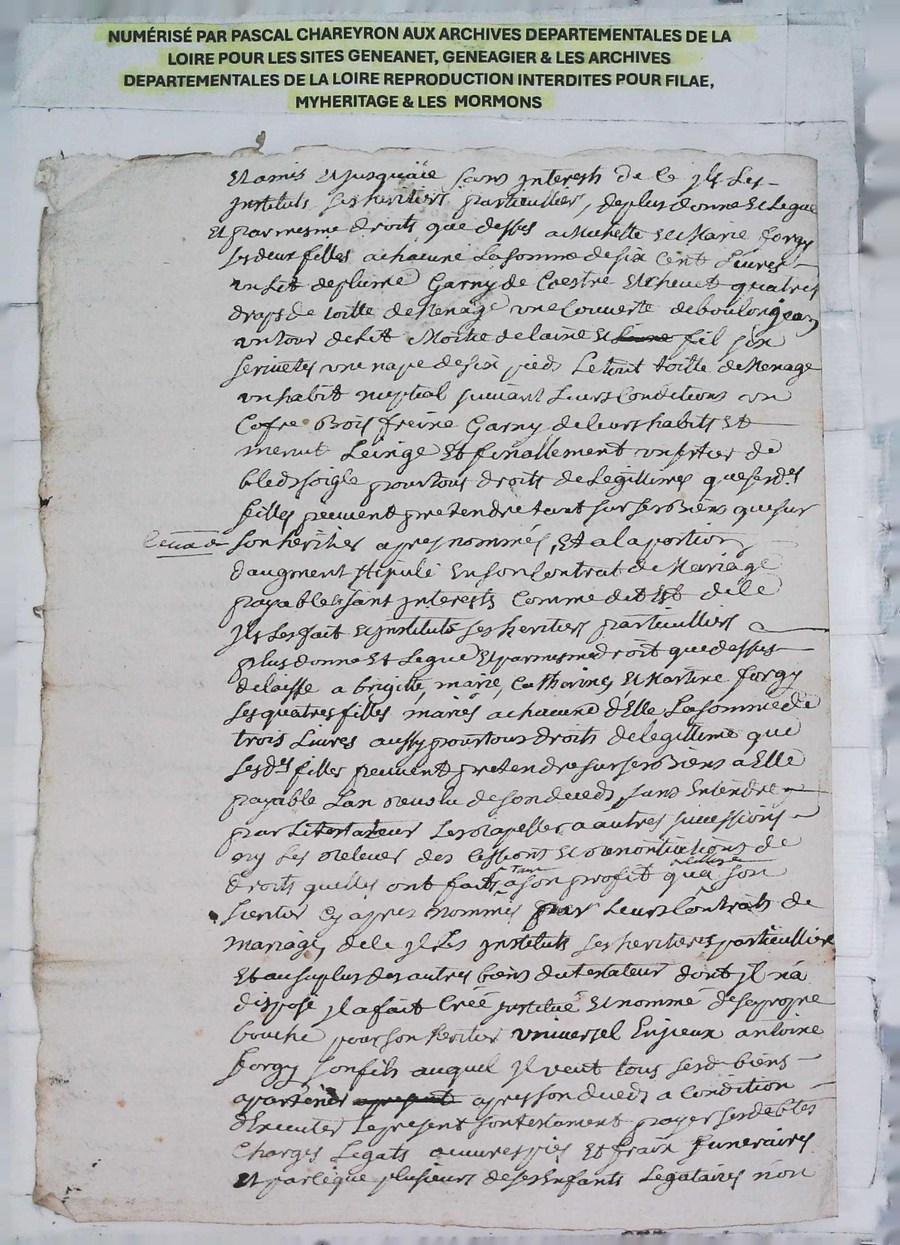 NUMÉRISÉ PAR PASCAL CHAREYRON AUX ARCHIVES DEPARTEMENTALES DE LA
LOIRE POUR LES SITES GENEANET, GENEAGIER & LES ARCHIVES
DEPARTEMENTALES DE LA LOIRE REPRODUCTION INTERDITES POUR FILAE,
MYHERITAGE & LES MORMONS
Et amis et jusqu'a ie sans interests de ce jl les
jnstituts ses heritiers particulliers, de plus donne et legue
Et par mesme droits que dessus a et Marie forgy
ses deux filles a chacune la somme de six cent livres
un lit de plume Garny de Coestre et chevet quatres
draps de toille de menage une couverte de
un tour de lit Moitié de laine et fil six
serviettes une nape de six pieds le tout toille de menage
un habit nuptial suivant leurs conditions un
Cofre Bois freine Garny de leurs habits et
menut leinge et finallement un de
bled soigle pour tous droits de legittimes que sesds
filles peuvent pretendre tant sur ses biens que sur
son heritier apres nommés, et a la portion
d'augment stipulé en son contrat de Mariage
payables sans interests comme dit est de ce
jl les fait et jnstituts ses heritiers particulliers
plus donne et legue et par mesme droit que dessus
delaisse a brigitte, marie, Catherine, et Martine forgy
ses quatres filles mariés a chacune d'Elle la somme de
trois livres aussy pour tous droits de legittime que
sesds filles peuvent pretendre sur ses biens a Elle
payable l'an revolu de son deceds, sans Entendre
par le testateur les rapeller a autres successions
ny les relever des cessions et renontiations de
droits quelles ont faits tant a son profit qu'a son
heritier cy apres nommés par leurs contrats de
mariage, de ce jl les jnstituts ses heritieres particulliere
Et au surplus des autres biens du testateur dont jl n'a
disposé jl a fait créé jnstitué et nommé de sa propre
bouche pour son heritier universel Enjieux antoine
forgy son fils auquel jl veut tous sesd biens
apres son deceds a condition
d'Executer le present son testament payer ses debtes
Charges legats œuvres pies et fraix funeraires
et par ce que plusieurs de ses Enfants legataires n'ont